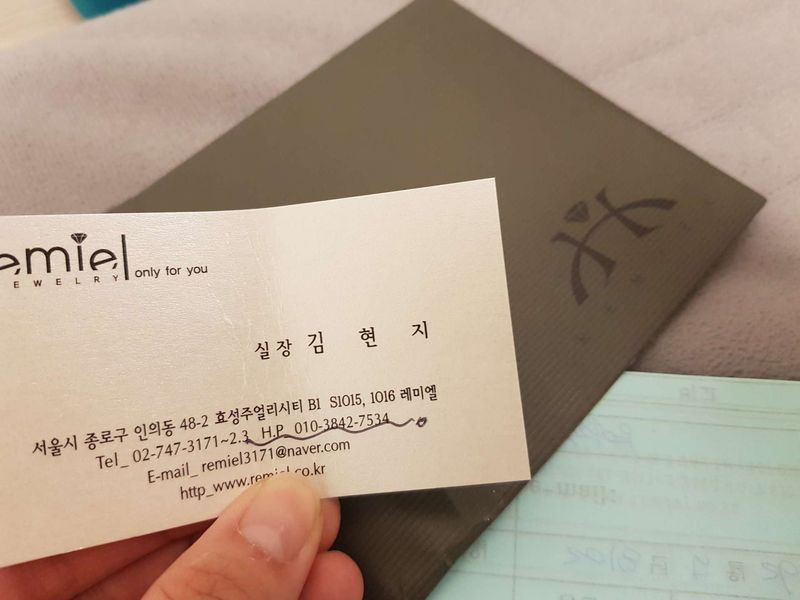 remiel only for you
JEWELRY
실장 김 현 지
서울시 종로구 인의동 48-2 효성주얼리시티 B1 S1015, 1016 레미엘
Tel_ 02-747-3171~2.3 H.P_ 010-3842-7534
E-mail_ remiel3171@naver.com
http_www.remiel.co.kr